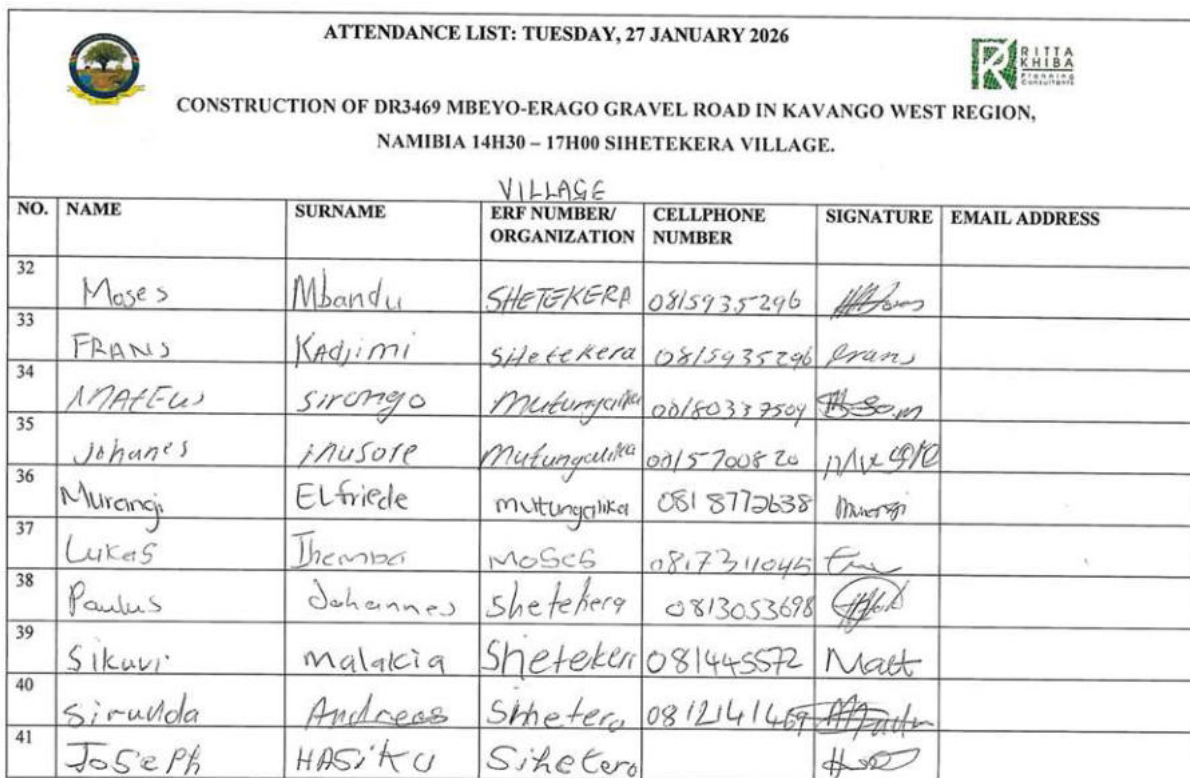 ATTENDANCE LIST: TUESDAY, 27 JANUARY 2026
RITTA
KHIBA
Planning
Consultants
CONSTRUCTION OF DR3469 MBEYO-ERAGO GRAVEL ROAD IN KAVANGO WEST REGION,
NAMIBIA 14H30 – 17H00 SIHETEKERA VILLAGE.
VILLAGE
NO. NAME SURNAME ERF NUMBER/ ORGANIZATION CELLPHONE NUMBER SIGNATURE EMAIL ADDRESS
32 Moses Mbandu SHETEKERA 0815935296
33 FRANS Kadjimi Sihetekera 0815935296 frans
34 MATEUS Sirongo Mutungalika 00180337509
35 Johanes Musore Mutungalika 0815700820
36 Murangi Elfriede muttungalika 081 8772638 Murangi
37 Lukas Themba Moses 0817311045
38 Paulus Johannes Shetekera 0813053698
39 Sikuvi malakia Shetekera 081445572 Matt
40 Sirunda Andreas Shhetera 0812141469
41 Joseph HASIKU Sihetera